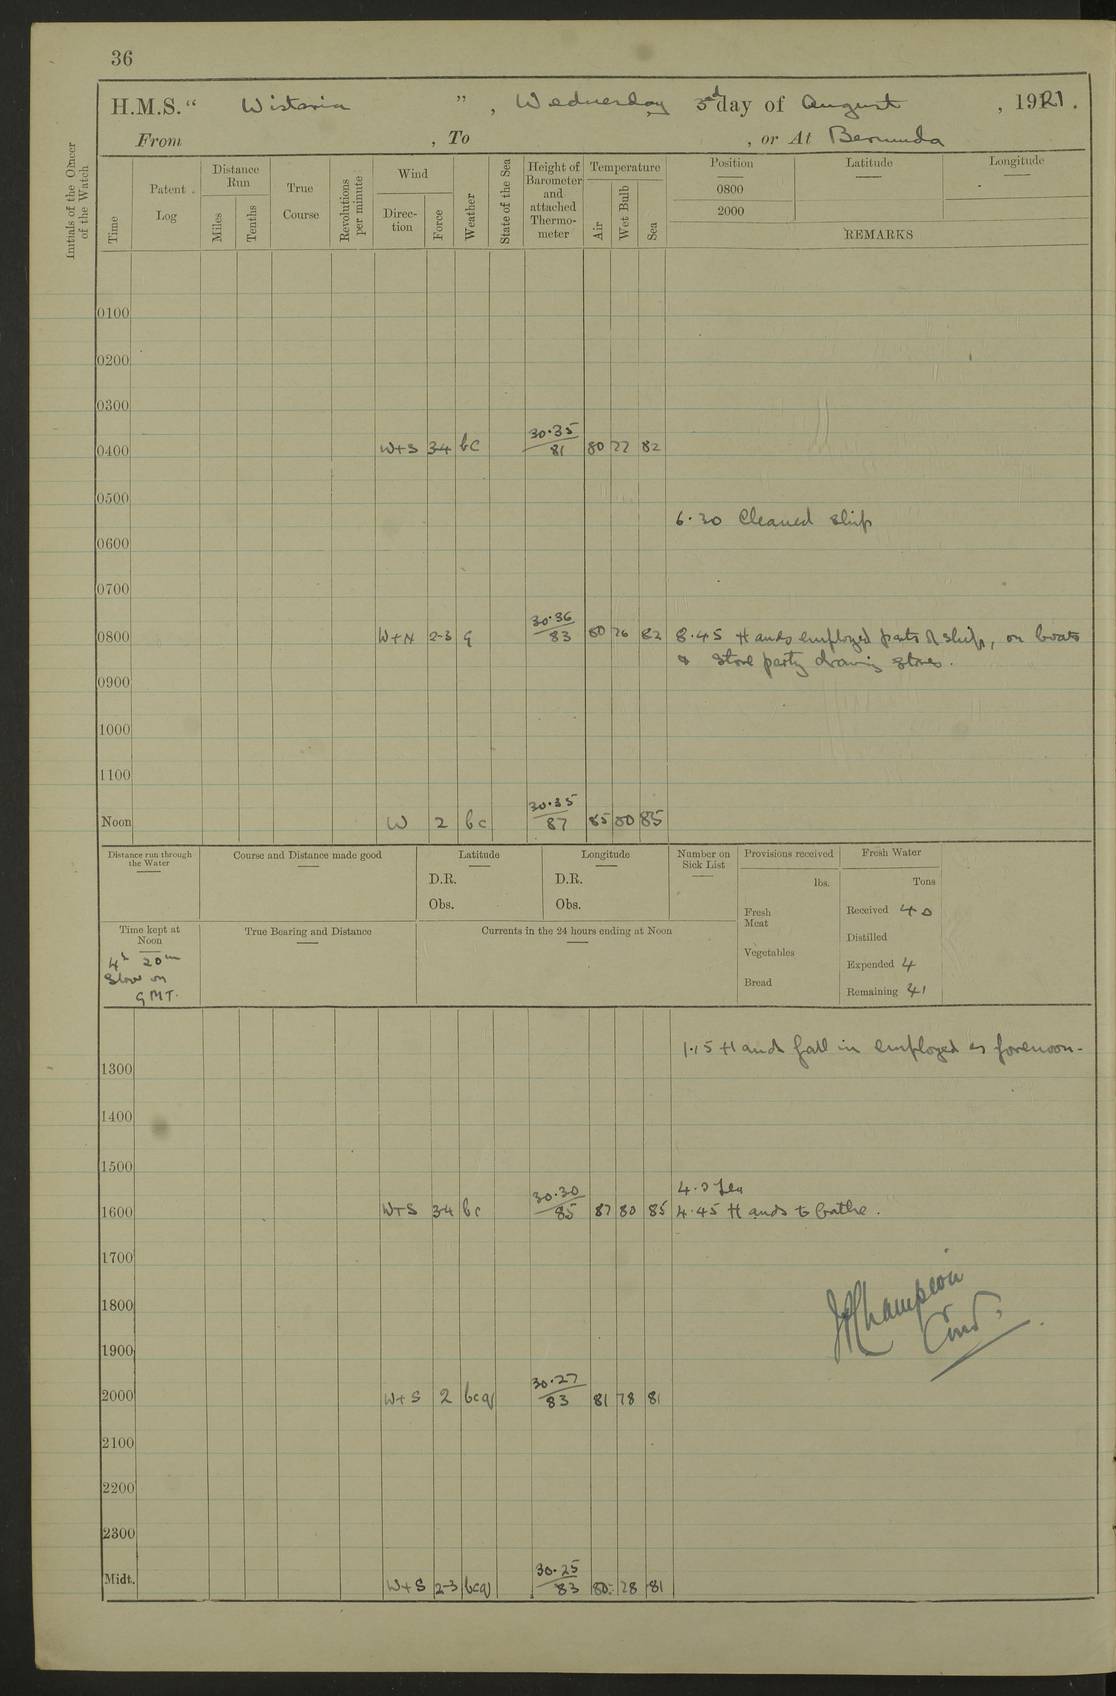 36
H.M.S. "Wistaria", Wednesday 3rd day of August, 1921.
From , To , or At Bermuda
Initials of the Officer of the Watch
Time
Patent Log
Distance Run
Miles
Tenths
True Course
Revolutions per minute
Wind
Direction
Force
Weather
State of the Sea
Height of Barometer and attached Thermometer
Temperature
Air
Wet Bulb
Sea
Position
0800
2000
Latitude
Longitude
REMARKS
0100
0200
0300
0400 W+S 3-4 bc 30.35/81 80 77 82
0500
6.30 Cleaned ship
0600
0700
0800 W+N 2-3 30.36/83 80 76 82 8.45 Hands employed parts of ship, on boats
& Store party drawing stores.
0900
1000
1100
Noon W 2 bc 30.35/87 85 80 85
Distance run through the Water
Course and Distance made good
Latitude
D.R.
Obs.
Longitude
D.R.
Obs.
Number on Sick List
Provisions received
lbs.
Fresh Meat
Vegetables
Bread
Fresh Water
Tons
Received 40
Distilled
Expended 4
Remaining 41
Time kept at Noon
4h 20m
Slow on
GMT.
True Bearing and Distance
Currents in the 24 hours ending at Noon
1.15 Hands fall in employed as forenoon.
1300
1400
1500
4.0 Tea
1600 W+S 3-4 bc 30.30/85 87 80 85 4.45 Hands to bathe.
1700
1800
JPChampion
Cmd.
1900
2000 W+S 2 bcq 30.27/83 81 78 81
2100
2200
2300
Midt. W+S 2-3 bcq 30.25/83 80 78 81